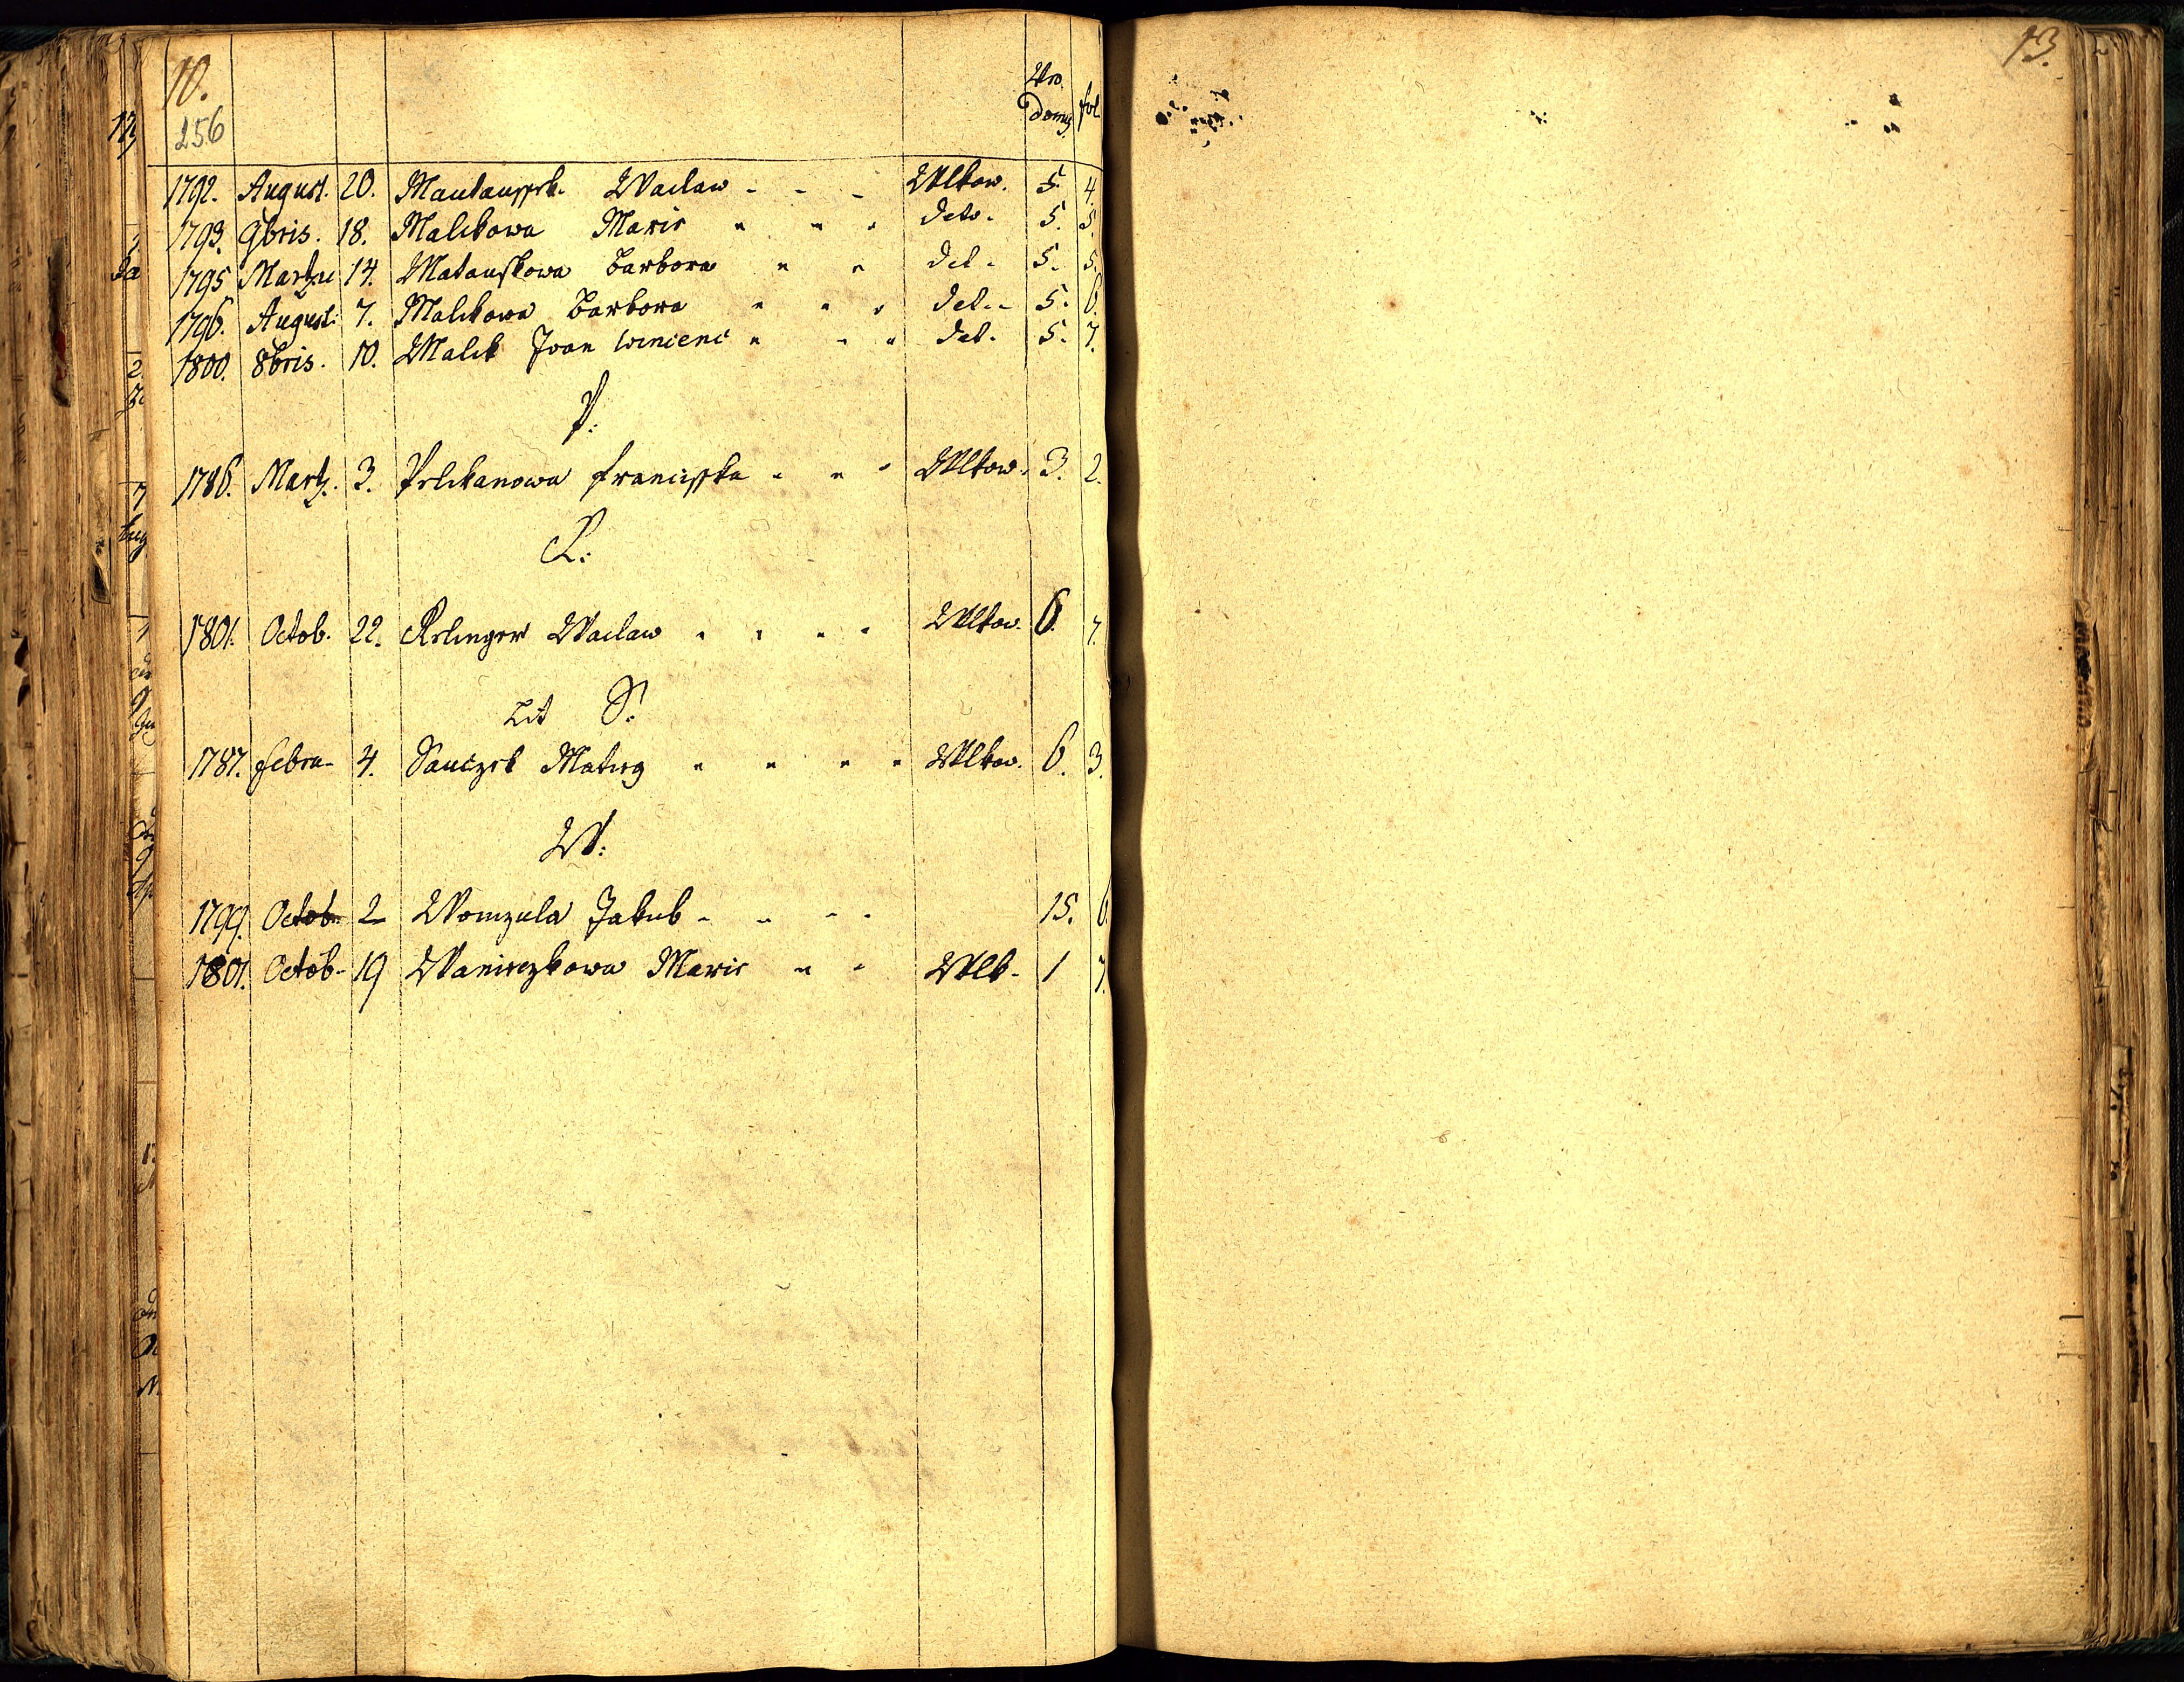 10.
256
Nro Domus fol
1792. August. 20. Waclaw - - - Wlkow. 5. 4.
1793. 9bris. 18. Malikowa Marie " " " deto. 5. 5.
1795 Martzu 14. Matauschkowa Barbora " " det. 5. 5.
1796. August: 7. Malikowa Barbora " " " det. 5. 6.
1800. 8bris. 10. Malik Joan Wincenc " " " det. 5. 7.
P:
1786. Martz. 3. Pelikanowa Franciska " " " Wlkow. 3. 2.
R:
1801. Octob. 22. Relinger Waclaw " " " " Wlkow. 6. 7.
Lit S:
1787. Febru- 4. Sauczek Mateg " " " " Wlkow. 6. 3.
W:
1799. Octob- 2 Womzula Jakub - - - - 15. 6.
1801. Octob- 19 Wanieczkowa Marie " " Wlk- 1 7.
13.